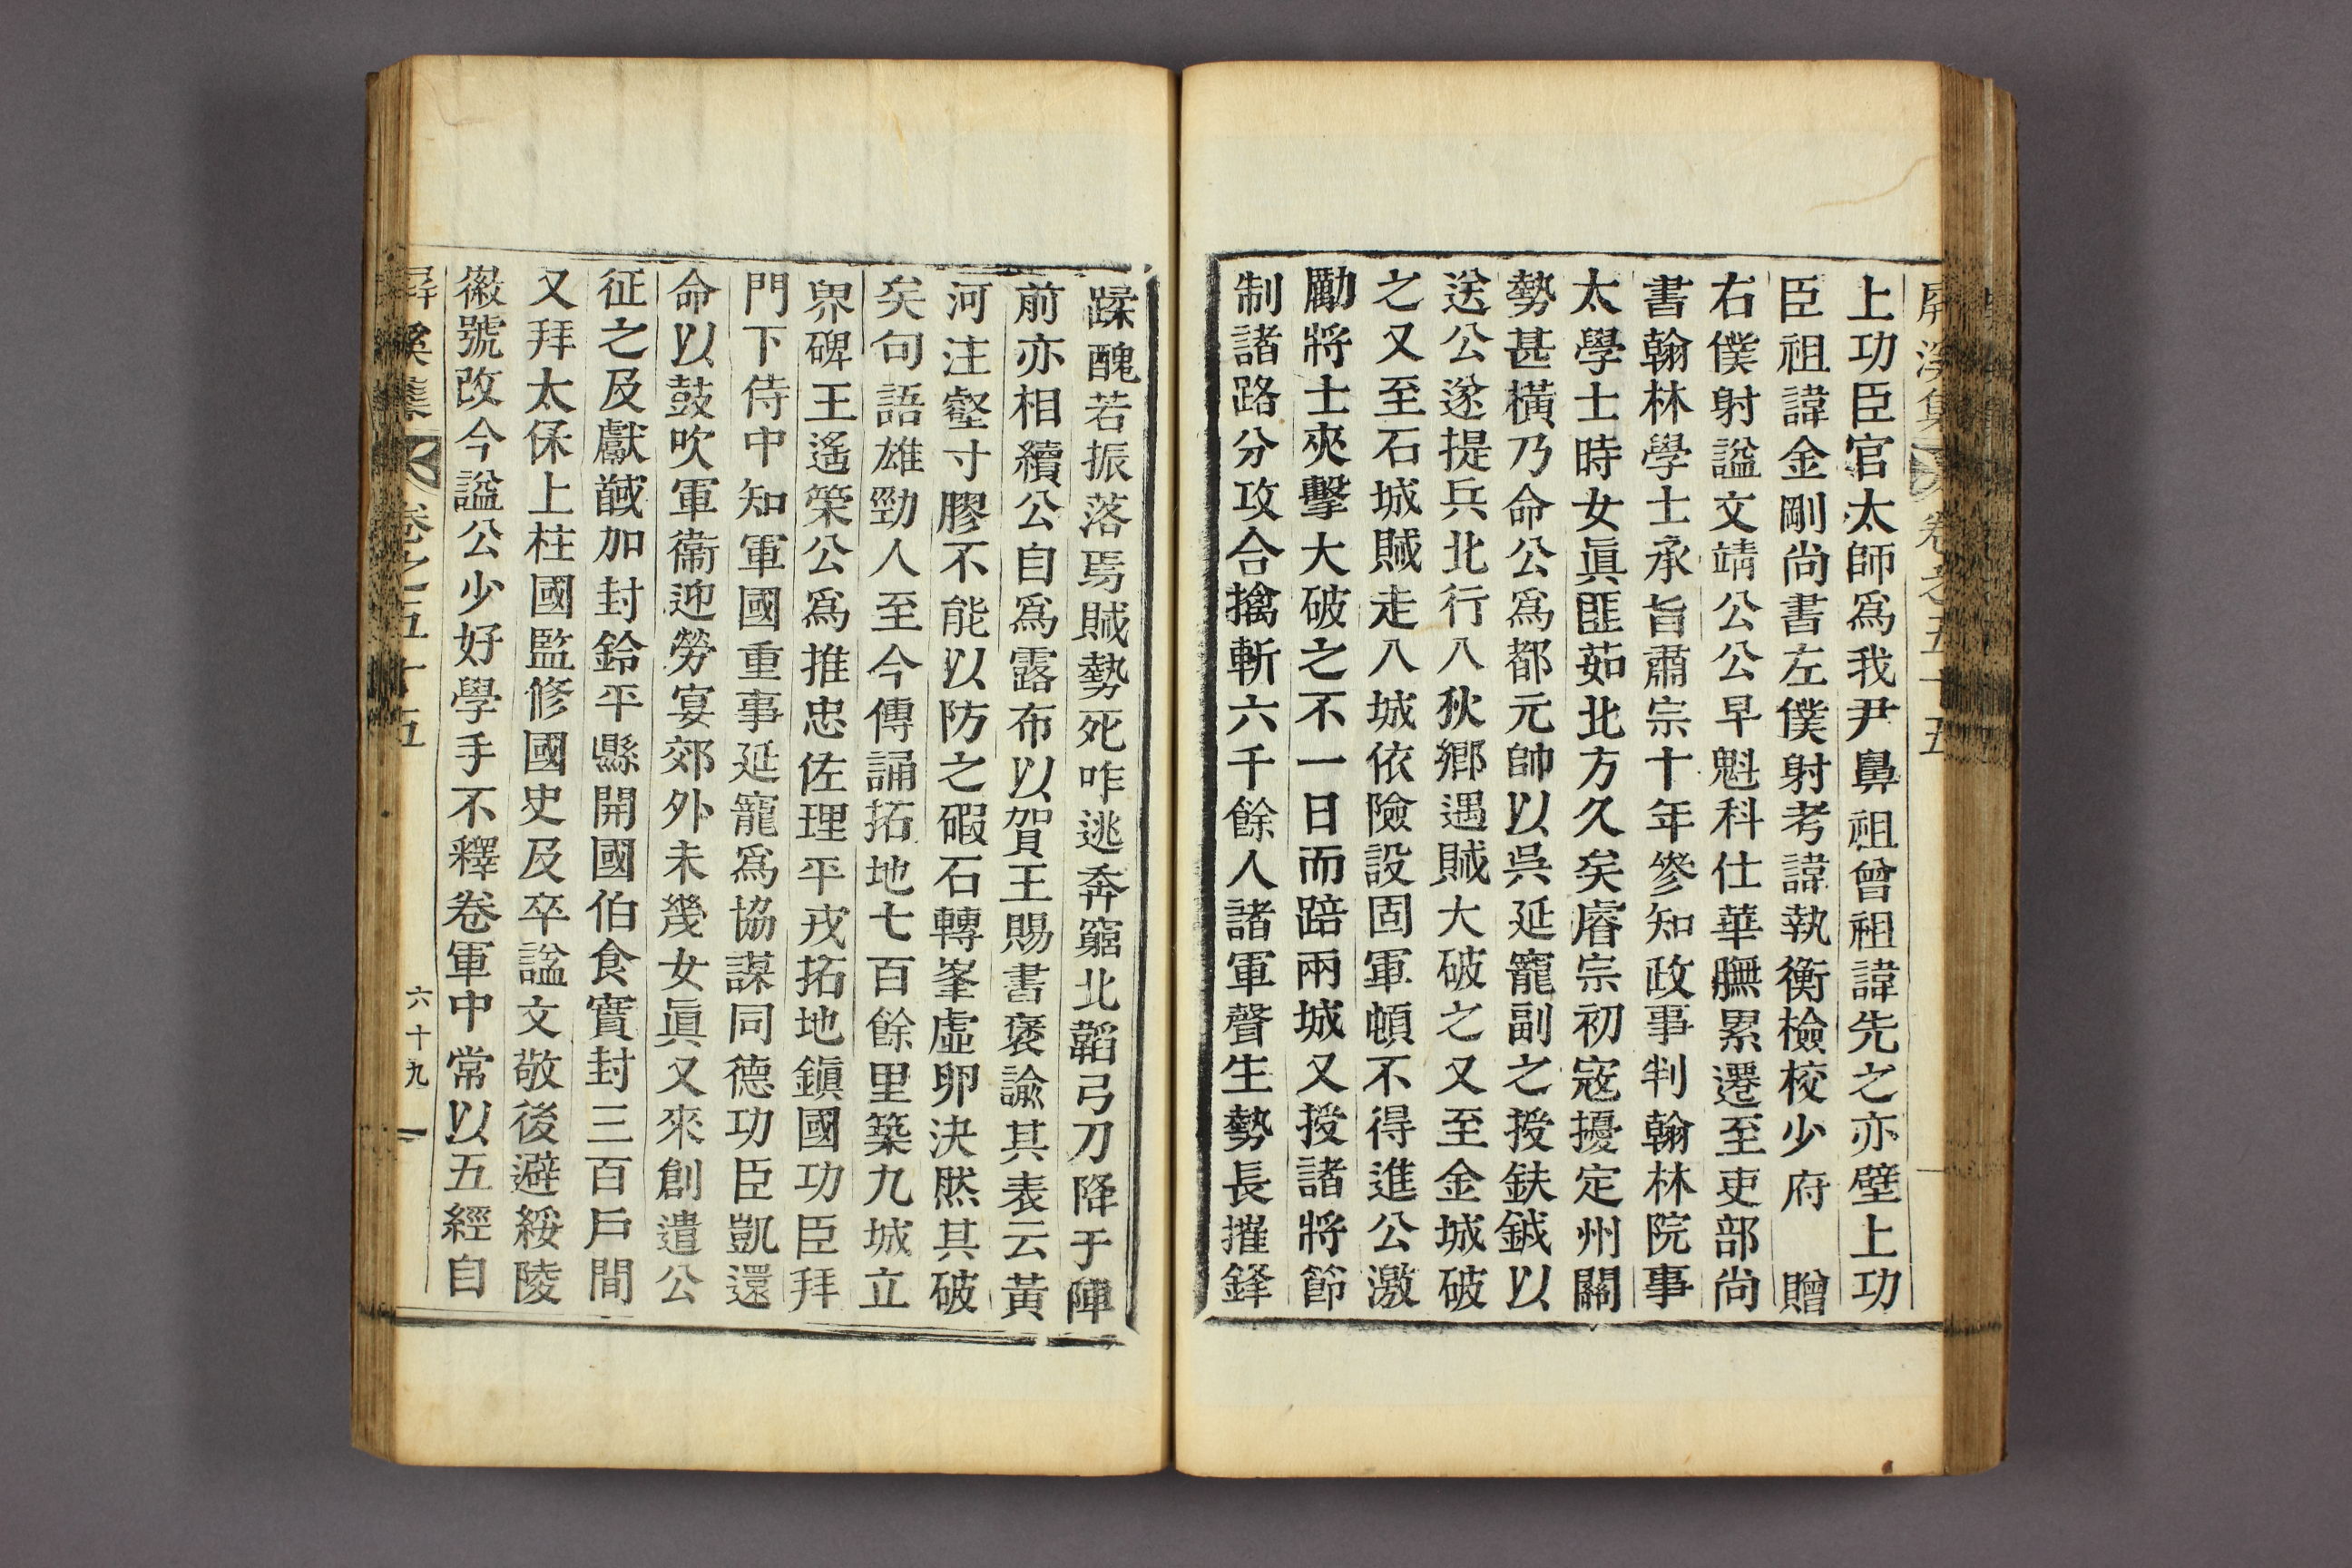 屛溪集 卷之五十五
上功臣官太師爲我尹鼻祖曾祖諱先之亦壁上功
臣祖諱金剛尙書左僕射考諱執衡檢校少府 贈
右僕射諡文靖公公早魁科仕華膴累遷至吏部尙
書翰林學士承旨肅宗十年叅知政事判翰林院事
太學士時女眞匪茹北方久矣睿宗初寇擾定州關
勢甚橫乃命公爲都元帥以吳延寵副之授鈇鉞以
送公遂提兵北行八狄鄕遇賊大破之又至金城破
之又至石城賊走八城依險設固軍頓不得進公激
勵將士夾擊大破之不一日而踣兩城又授諸將節
制諸路分攻合擒斬六千餘人諸軍聲生勢長摧鋒
蹂醜若振落焉賊勢死咋逃奔窮北韜弓刀降于陣
前亦相續公自爲露布以賀王賜書褒諭其表云黃
河注壑寸膠不能以防之磤石轉峯虛卵決然其破
矣句語雄勁人至今傳誦拓地七百餘里築九城立
界碑王遙策公爲推忠佐理平戎拓地鎭國功臣拜
門下侍中知軍國重事延寵爲協謀同德功臣凱還
命以鼓吹軍衞迎勞宴郊外未幾女眞又來創遣公
征之及獻馘加封鈴平縣開國伯食實封三百戶間
又拜太保上柱國監修國史及卒諡文敬後避綏陵
徽號改今諡公少好學手不釋卷軍中常以五經自
屛溪集 卷之五十五 六十九